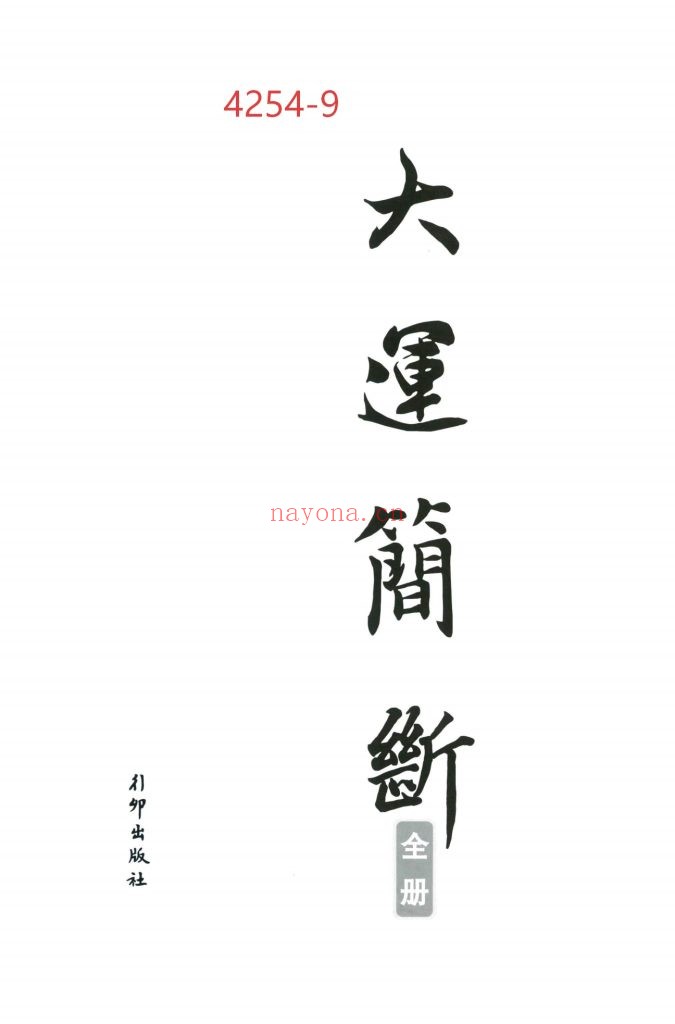 4254-9
大運簡斷
nayona.cn
全册
行卯出版社